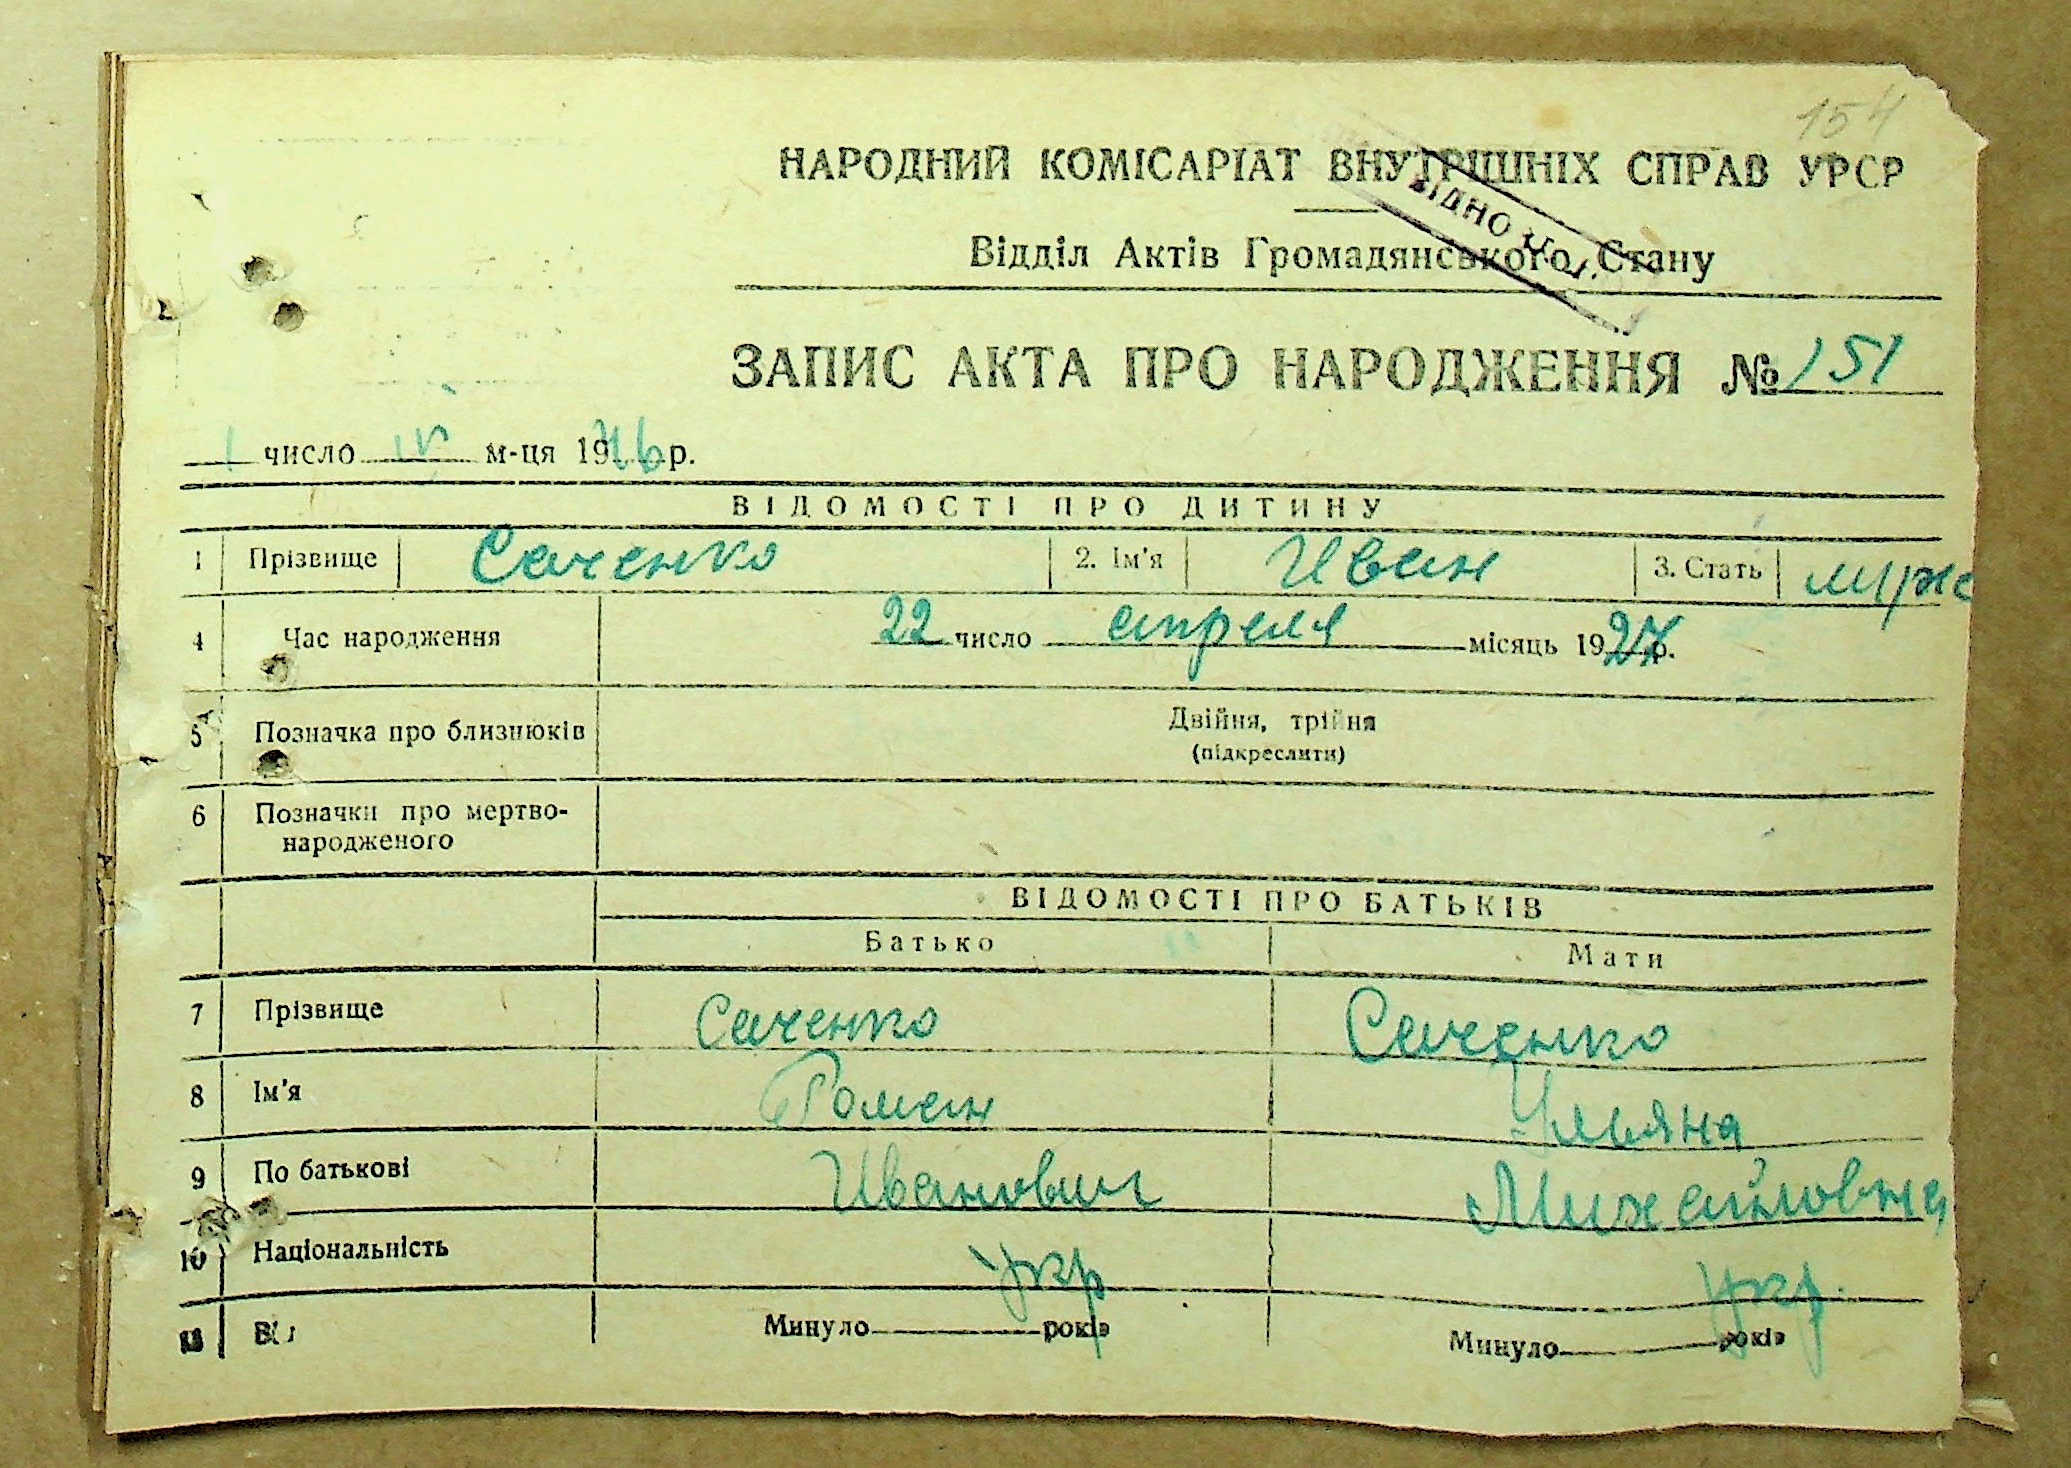 154
НАРОДНИЙ КОМІСАРІАТ ВНУТРІШНІХ СПРАВ УРСР
Відділ Актів Громадянського Стану
ЗАПИС АКТА ПРО НАРОДЖЕННЯ № 151
1 число IV м-ця 1946 р.
ВІДОМОСТІ ПРО ДИТИНУ
1 Прізвище Саченко 2. Ім'я Иван 3. Стать муж
4 Час народження 22 число апреля місяць 1927 р.
5 Позначка про близнюків Двійня, трійня
(підкреслити)
6 Позначки про мертво-
народженого
ВІДОМОСТІ ПРО БАТЬКІВ
Батько Мати
7 Прізвище Саченко Саченко
8 Ім'я Роман Ульяна
9 По батькові Иванович Михайловна
10 Національність укр укр.
Минуло років Минуло років